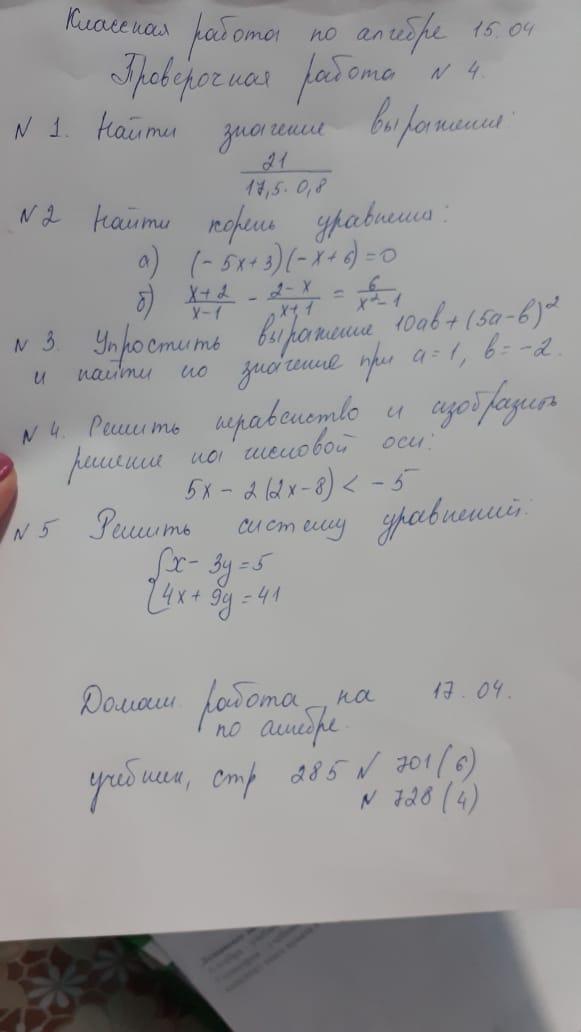 Классная работа по алгебре 15.04
Проверочная работа N 4.
N 1. Найти значение выражения:
21
17,5 · 0,8
N 2 Найти корень уравнения:
а) (-5x+3)(-x+6)=0
б) x+2/x-1 - 2-x/x+1 = 6/x²-1
N 3. Упростить выражение 10ab+(5a-b)²
и найти его значение при a=1, b=-2.
N 4. Решить неравенство и изобразить
решение на числовой оси:
5x - 2(2x-8) < -5
N 5 Решить систему уравнений:
{x - 3y = 5
4x + 9y = 41
Домаш. работа на 17.04.
по алгебре.
учебник, стр 285 N 701(6)
N 728(4)